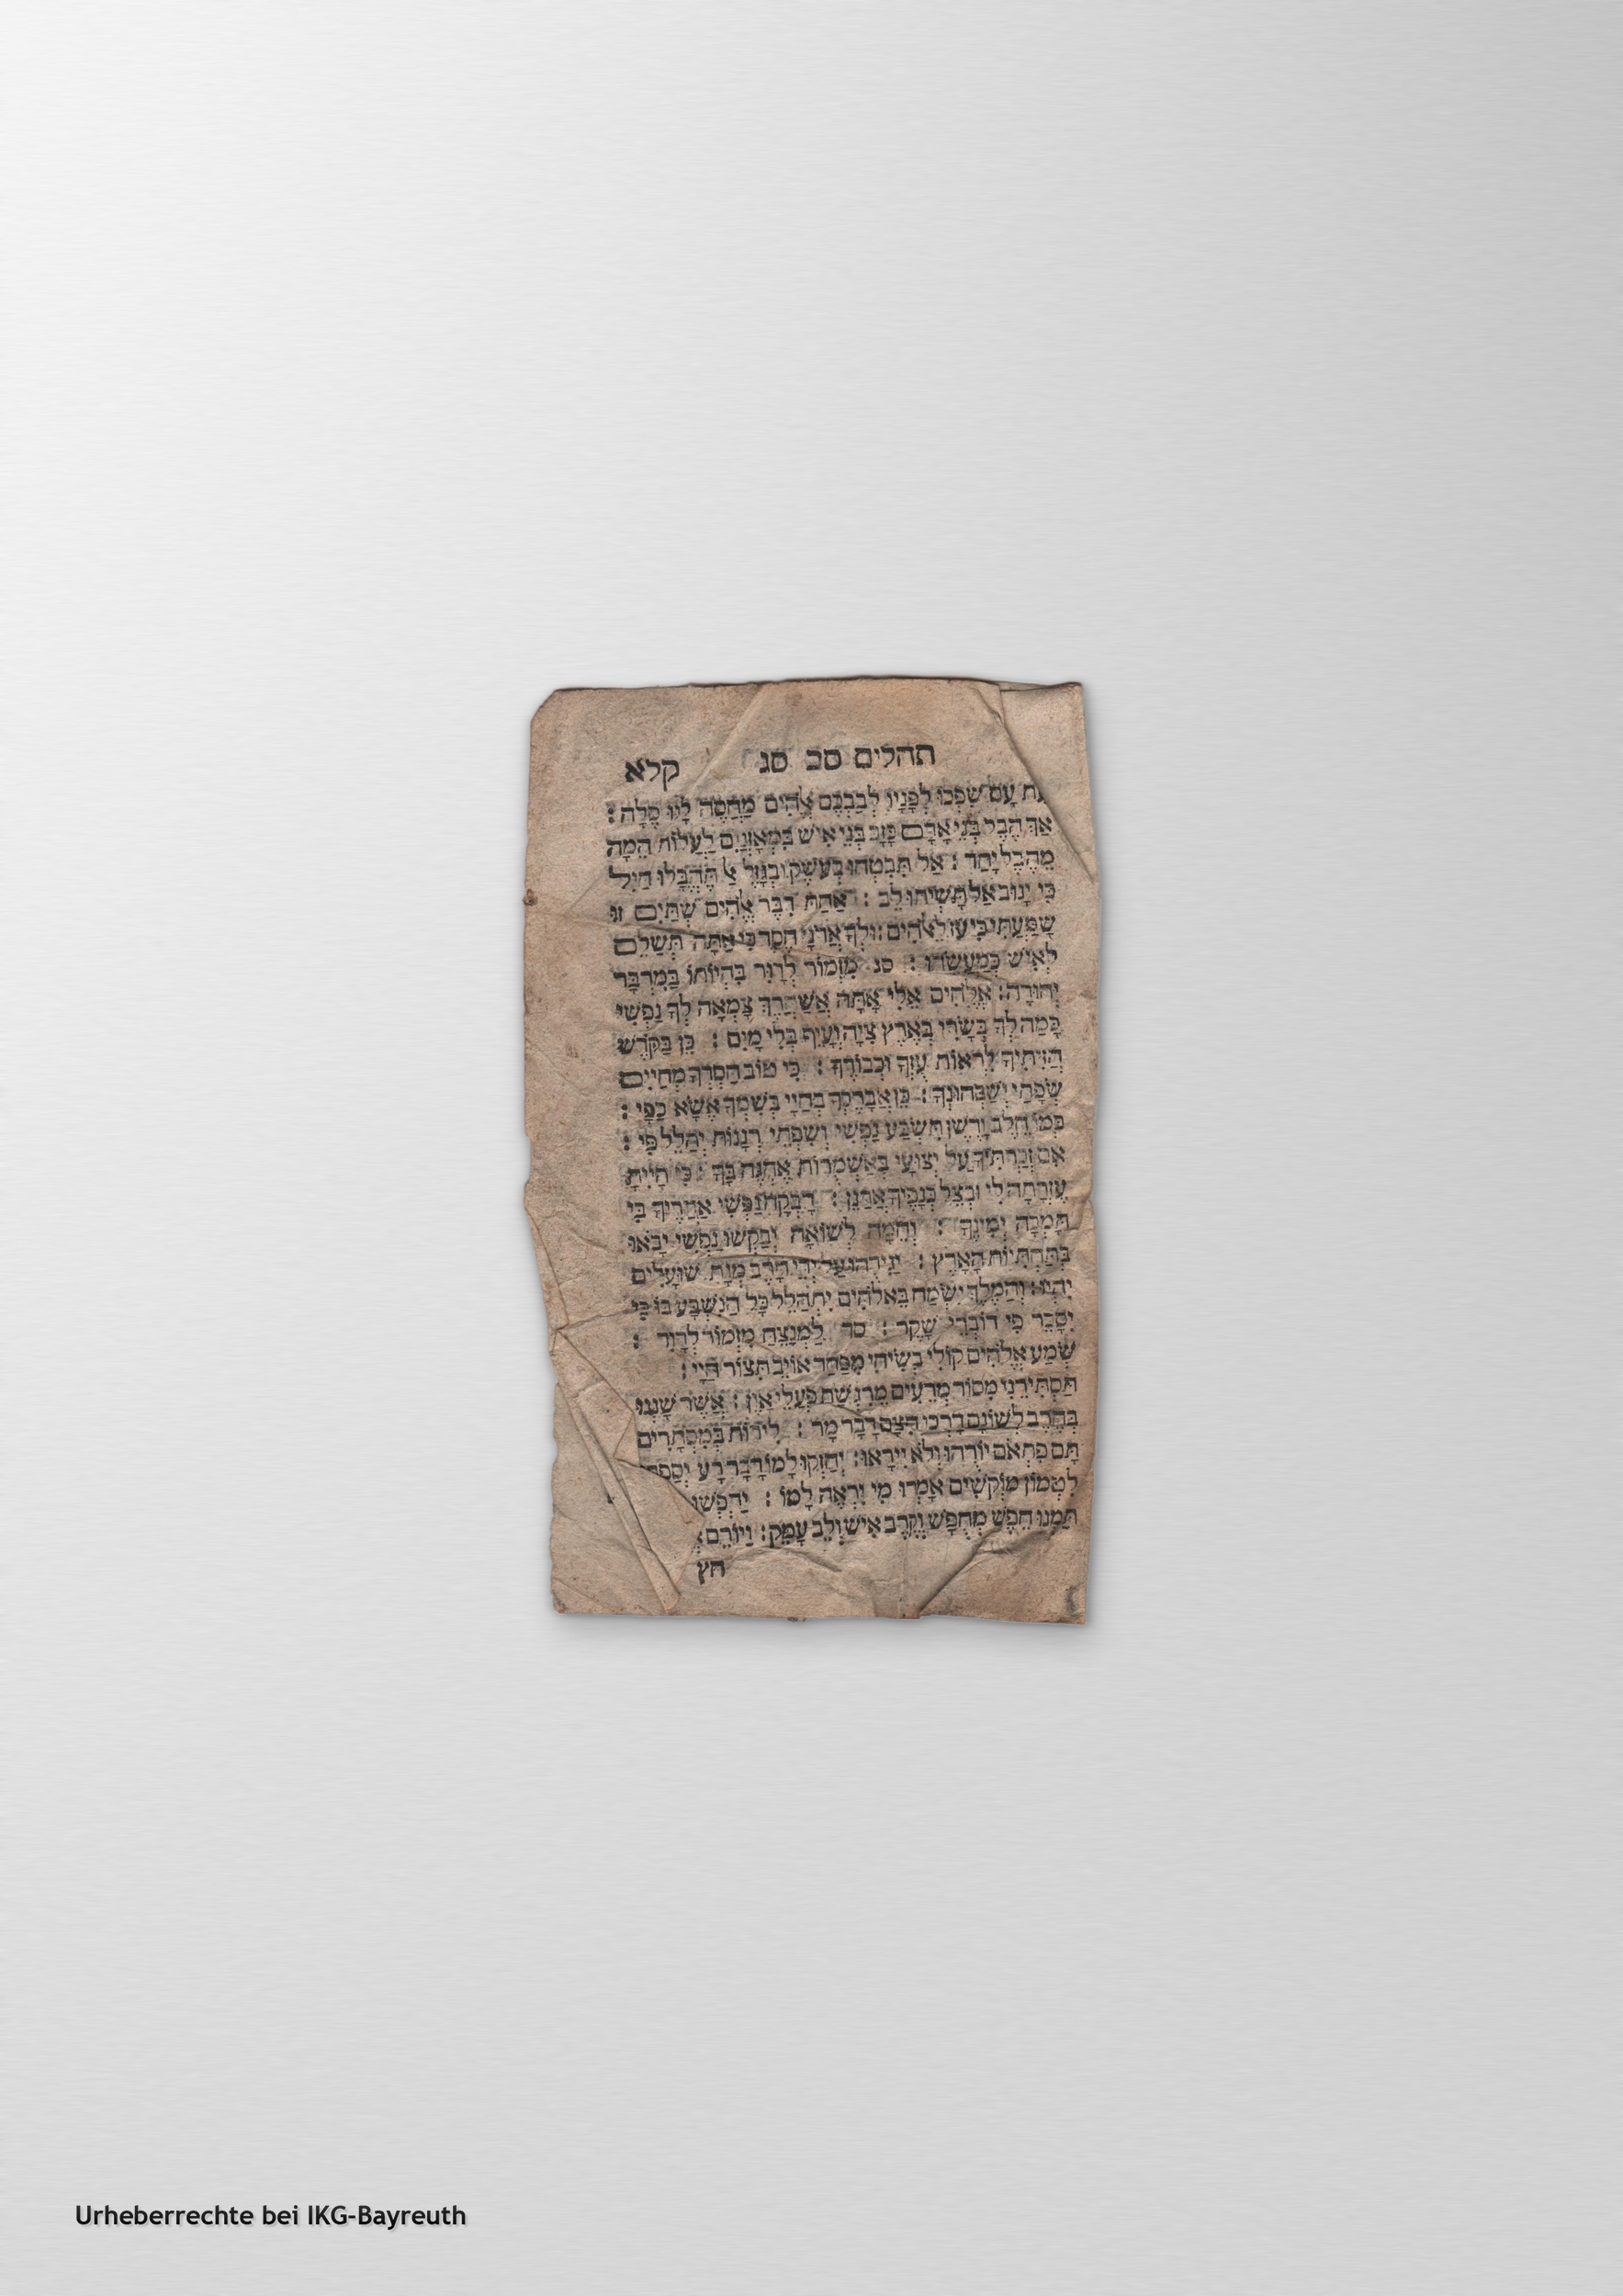 תהלים סב סג
קלא
עָם שִׁפְכוּ לְפָנָיו לְבַבְכֶם אֱלֹהִים מַחֲסֶה לָּנוּ סֶלָה :
אַךְ הֶבֶל בְּנֵי אָדָם כָּזָב בְּנֵי אִישׁ בְּמֹאזְנַיִם לַעֲלוֹת הֵמָּה
מֵהֶבֶל יָחַד : אַל תִּבְטְחוּ בְעֹשֶׁק וּבְגָזֵל אַל תֶּהְבָּלוּ חַיִל
כִּי יָנוּב אַל תָּשִׁיתוּ לֵב : אַחַת דִּבֶּר אֱלֹהִים שְׁתַּיִם זוּ
שָׁמָעְתִּי כִּי עֹז לֵאלֹהִים : וּלְךָ אֲדֹנָי חָסֶד כִּי אַתָּה תְשַׁלֵּם
לְאִישׁ כְּמַעֲשֵׂהוּ : סג מִזְמוֹר לְדָוִד בִּהְיוֹתוֹ בְּמִדְבַּר
יְהוּדָה : אֱלֹהִים אֵלִי אַתָּה אֲשַׁחֲרֶךָּ צָמְאָה לְךָ נַפְשִׁי
כָּמַהּ לְךָ בְשָׂרִי בְּאֶרֶץ צִיָּה וְעָיֵף בְּלִי מָיִם : כֵּן בַּקֹּדֶשׁ
חֲזִיתִיךָ לִרְאוֹת עֻזְּךָ וּכְבוֹדֶךָ : כִּי טוֹב חַסְדְּךָ מֵחַיִּים
שְׂפָתַי יְשַׁבְּחוּנְךָ : כֵּן אֲבָרֶכְךָ בְחַיָּי בְּשִׁמְךָ אֶשָּׂא כַפָּי :
כְּמוֹ חֵלֶב וָדֶשֶׁן תִּשְׂבַּע נַפְשִׁי וְשִׂפְתֵי רְנָנוֹת יְהַלֶּל פִּי :
אִם זְכַרְתִּיךָ עַל יְצוּעָי בְּאַשְׁמֻרוֹת אֶהְגֶּה בָּךְ : כִּי הָיִיתָ
עֶזְרָתָה לִּי וּבְצֵל כְּנָפֶיךָ אֲרַנֵּן : דָּבְקָה נַפְשִׁי אַחֲרֶיךָ בִּי
תָּמְכָה יְמִינֶךָ : וְהֵמָּה לְשׁוֹאָה יְבַקְשׁוּ נַפְשִׁי יָבֹאוּ
בְּתַחְתִּיּוֹת הָאָרֶץ : יַגִּירֻהוּ עַל יְדֵי חָרֶב מְנָת שׁוּעָלִים
יִהְיוּ : וְהַמֶּלֶךְ יִשְׂמַח בֵּאלֹהִים יִתְהַלֵּל כָּל הַנִּשְׁבָּע בּוֹ כִּי
יִסָּכֵר פִּי דוֹבְרֵי שָׁקֶר : סד לַמְנַצֵּחַ מִזְמוֹר לְדָוִד :
שְׁמַע אֱלֹהִים קוֹלִי בְשִׂיחִי מִפַּחַד אוֹיֵב תִּצּוֹר חַיָּי :
תַּסְתִּירֵנִי מִסּוֹד מְרֵעִים מֵרִגְשַׁת פֹּעֲלֵי אָוֶן : אֲשֶׁר שָׁנְנוּ
כַחֶרֶב לְשׁוֹנָם דָּרְכוּ חִצָּם דָּבָר מָר : לִירוֹת בַּמִּסְתָּרִים
תָּם פִּתְאֹם יוֹרֻהוּ וְלֹא יִירָאוּ : יְחַזְּקוּ לָמוֹ דָּבָר רָע יְסַפְּרוּ
לִטְמוֹן מוֹקְשִׁים אָמְרוּ מִי יִרְאֶה לָּמוֹ : יַחְפְּשׂוּ
תַּמְנוּ חֵפֶשׂ מְחֻפָּשׂ וְקֶרֶב אִישׁ וְלֵב עָמֹק : וַיּוֹרֵם
חץ
Urheberrechte bei IKG-Bayreuth